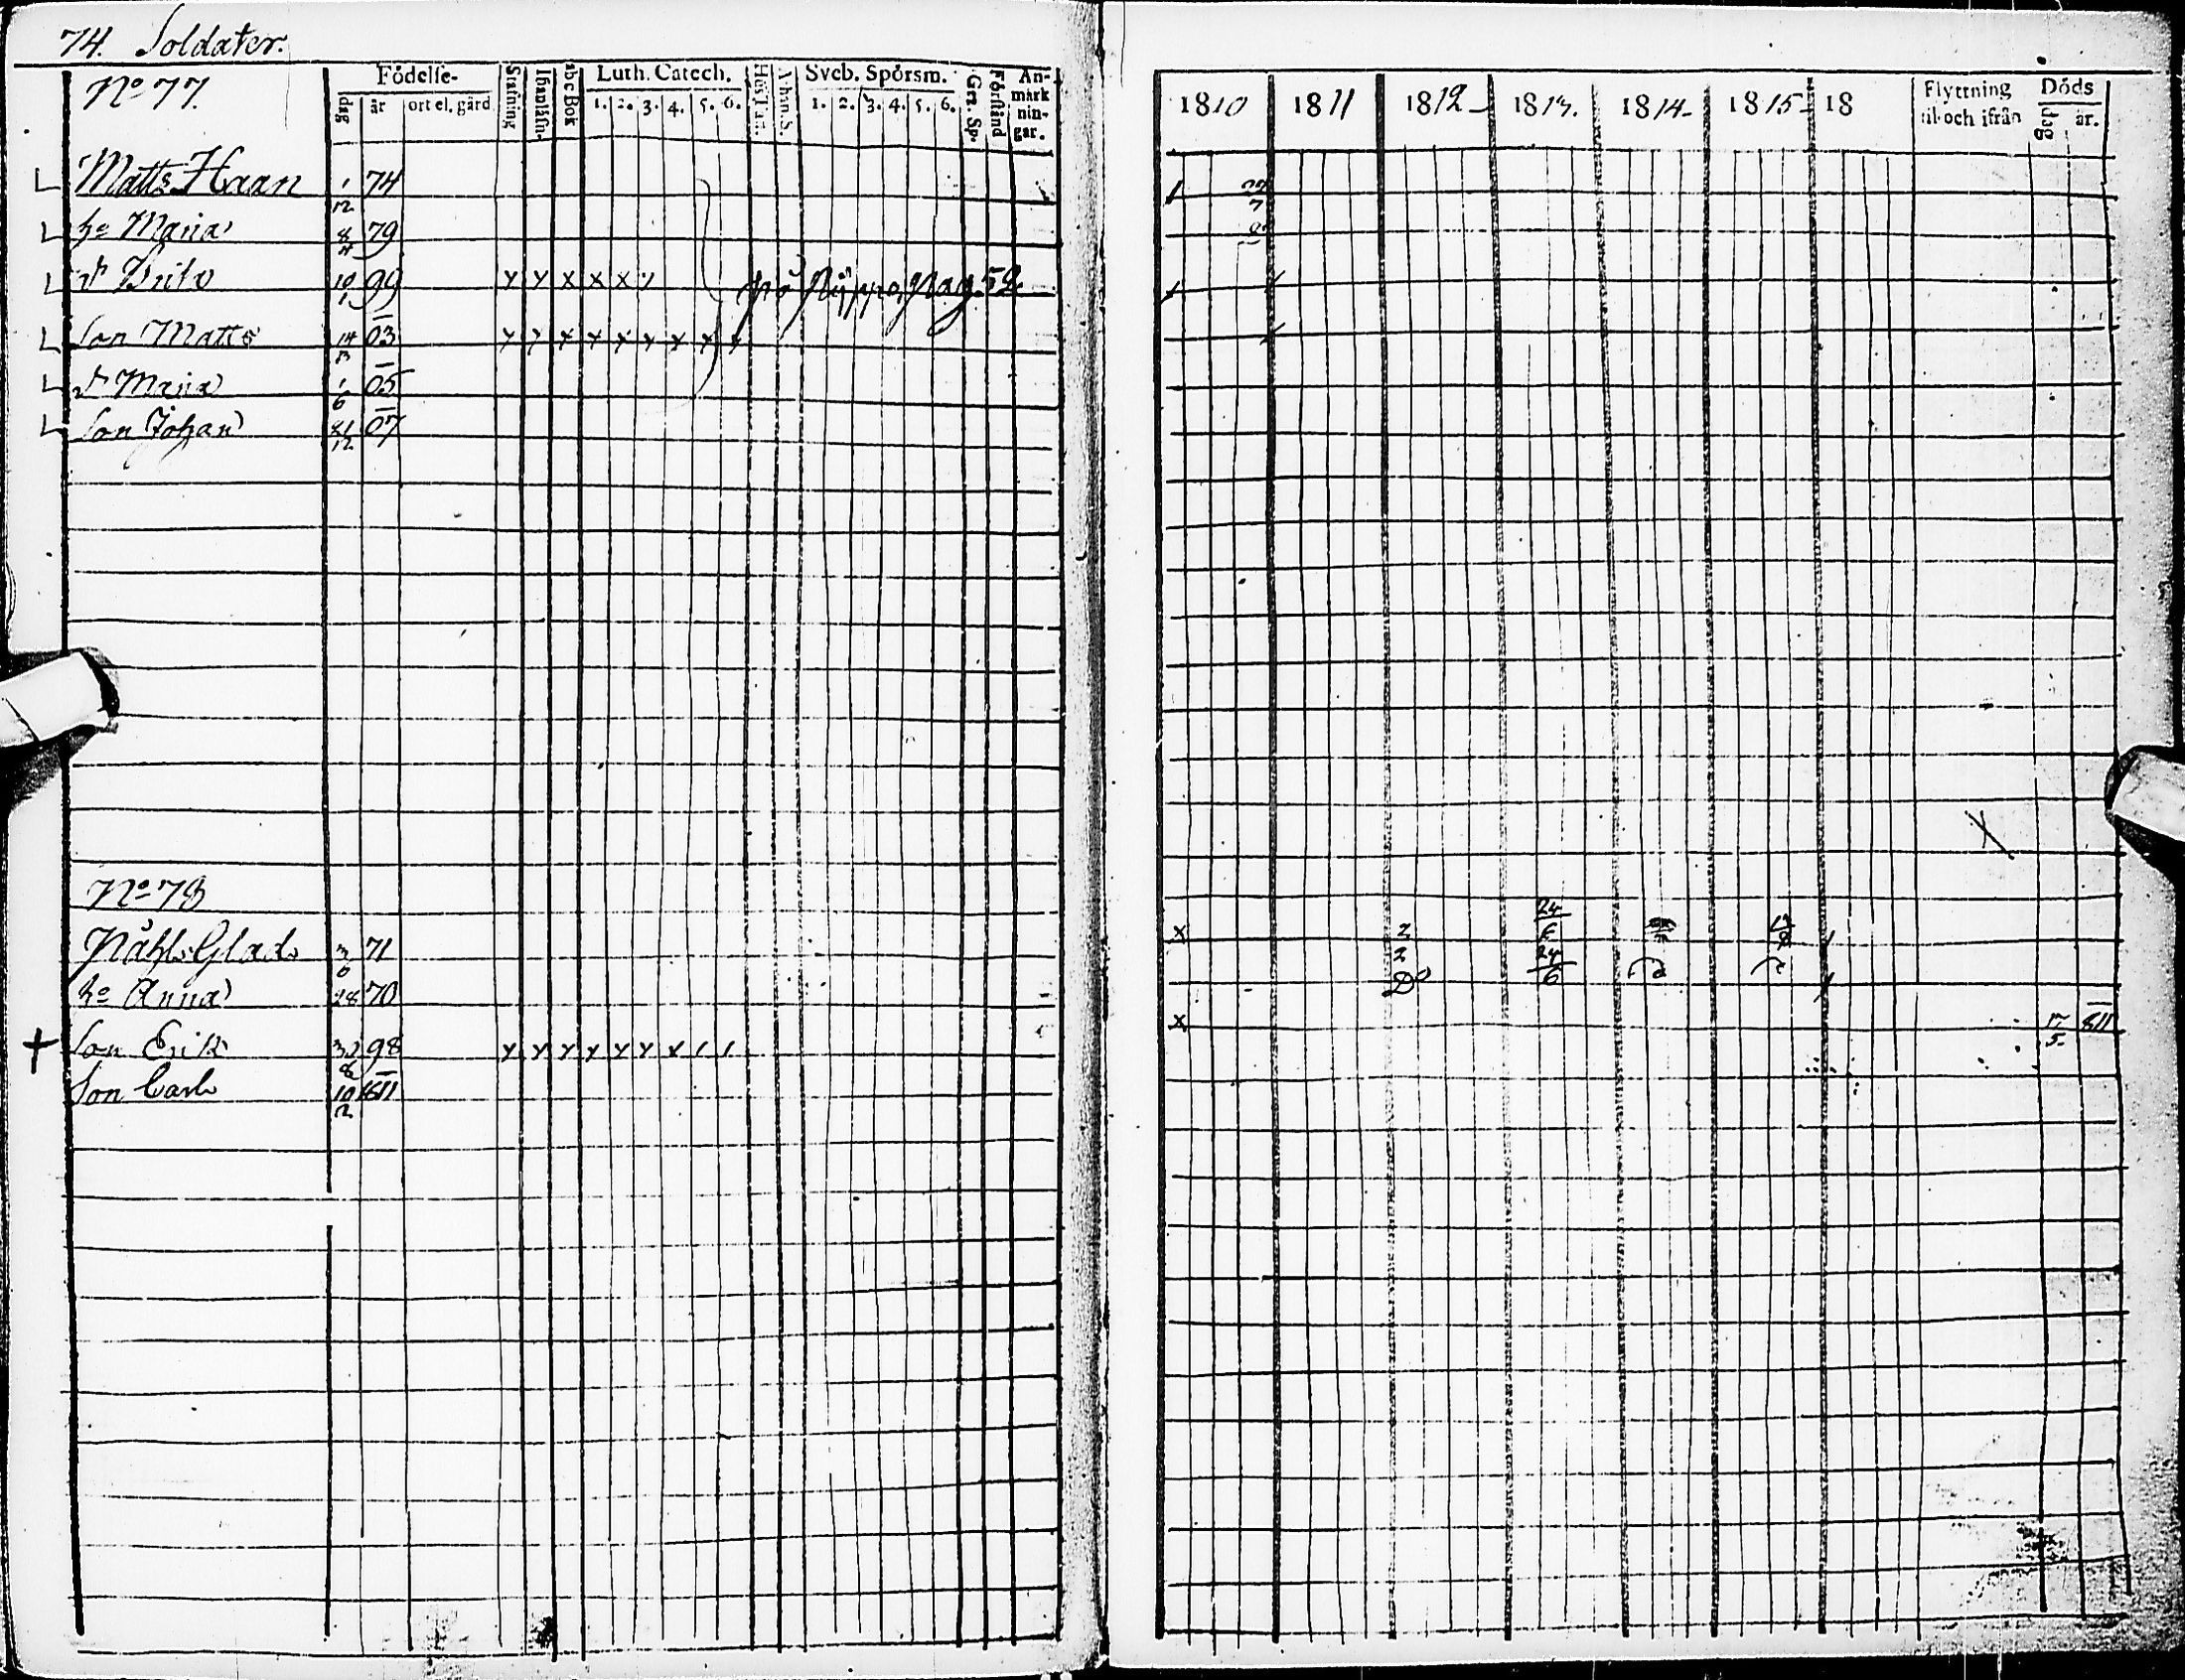 74. Soldater.
No 77.
Födelse-
dag
år
ort el. gård
Stafning
abc Bok
Luth. Catech.
1. 2. 3. 4. 5. 6.
Sveb. Spörsm.
1. 2. 3. 4. 5. 6.
Grx. Sp.
Förstånd
An-
märk
nin-
gar.
1810 1811 1812 1813. 1814 1815 18
Flyttning
til och ifrån
Döds
dag
år.
Matts Haan 1/12 74
hu Maria 8/4 79
dr Brita 10/1 99 pag. 52
Son Matts 14 03
dr Maria 1/6 05
Son Johan 21/12 07
No 78
Påhl Glad 3 71
hu Anna 28 70
Son Erik 30/8 98 17/5 811
Son Carl 10/2 1811
2
2
Do
24/6
24/6